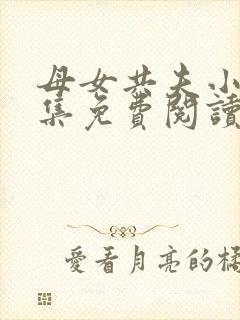 母女共夫小
集免費閱讀
愛看月亮的橘